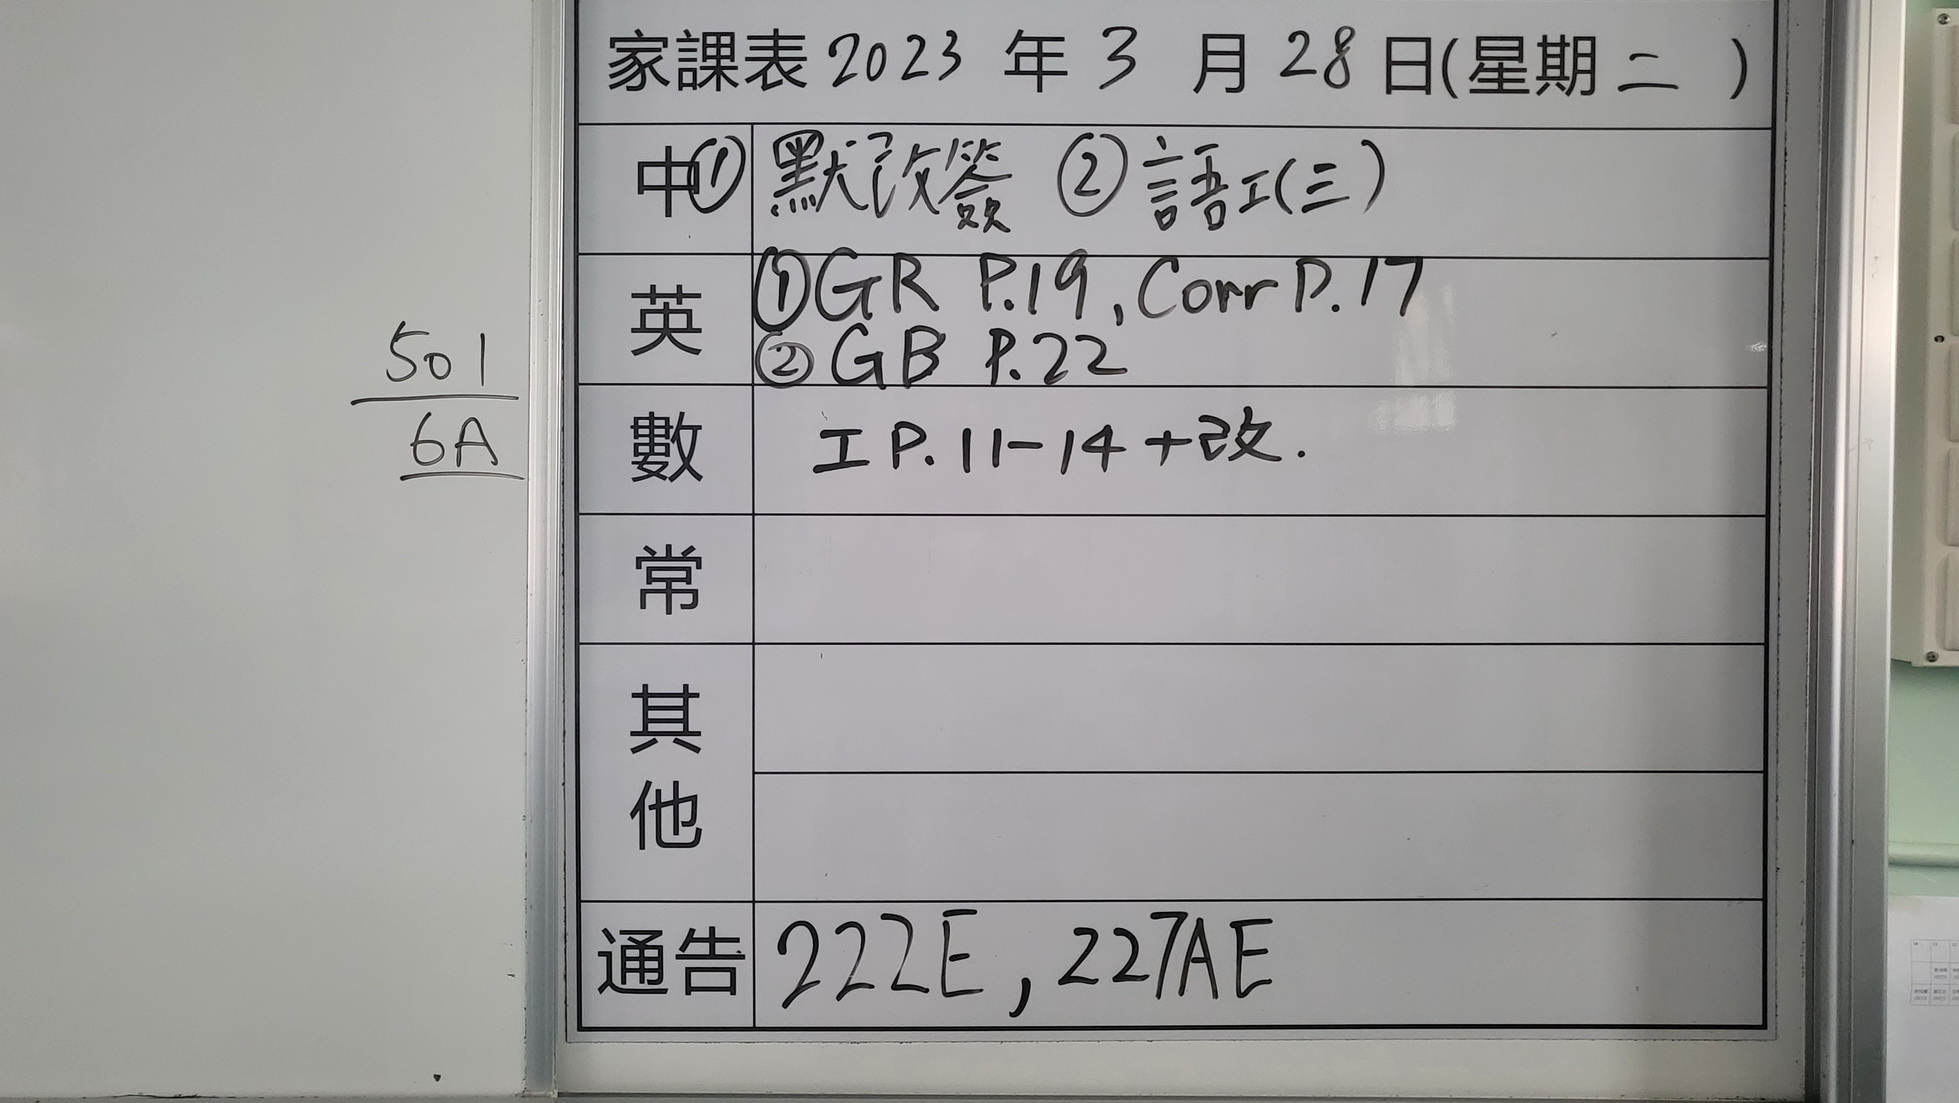 家課表 2023 年 3 月 28 日(星期 二 )
中 ① 默改簽 ② 語工(三)
英 ① GR P.19, Corr P.17
② GB P.22
數 工 P.11-14 + 改.
常
其他
通告 222E, 227AE
501
6A